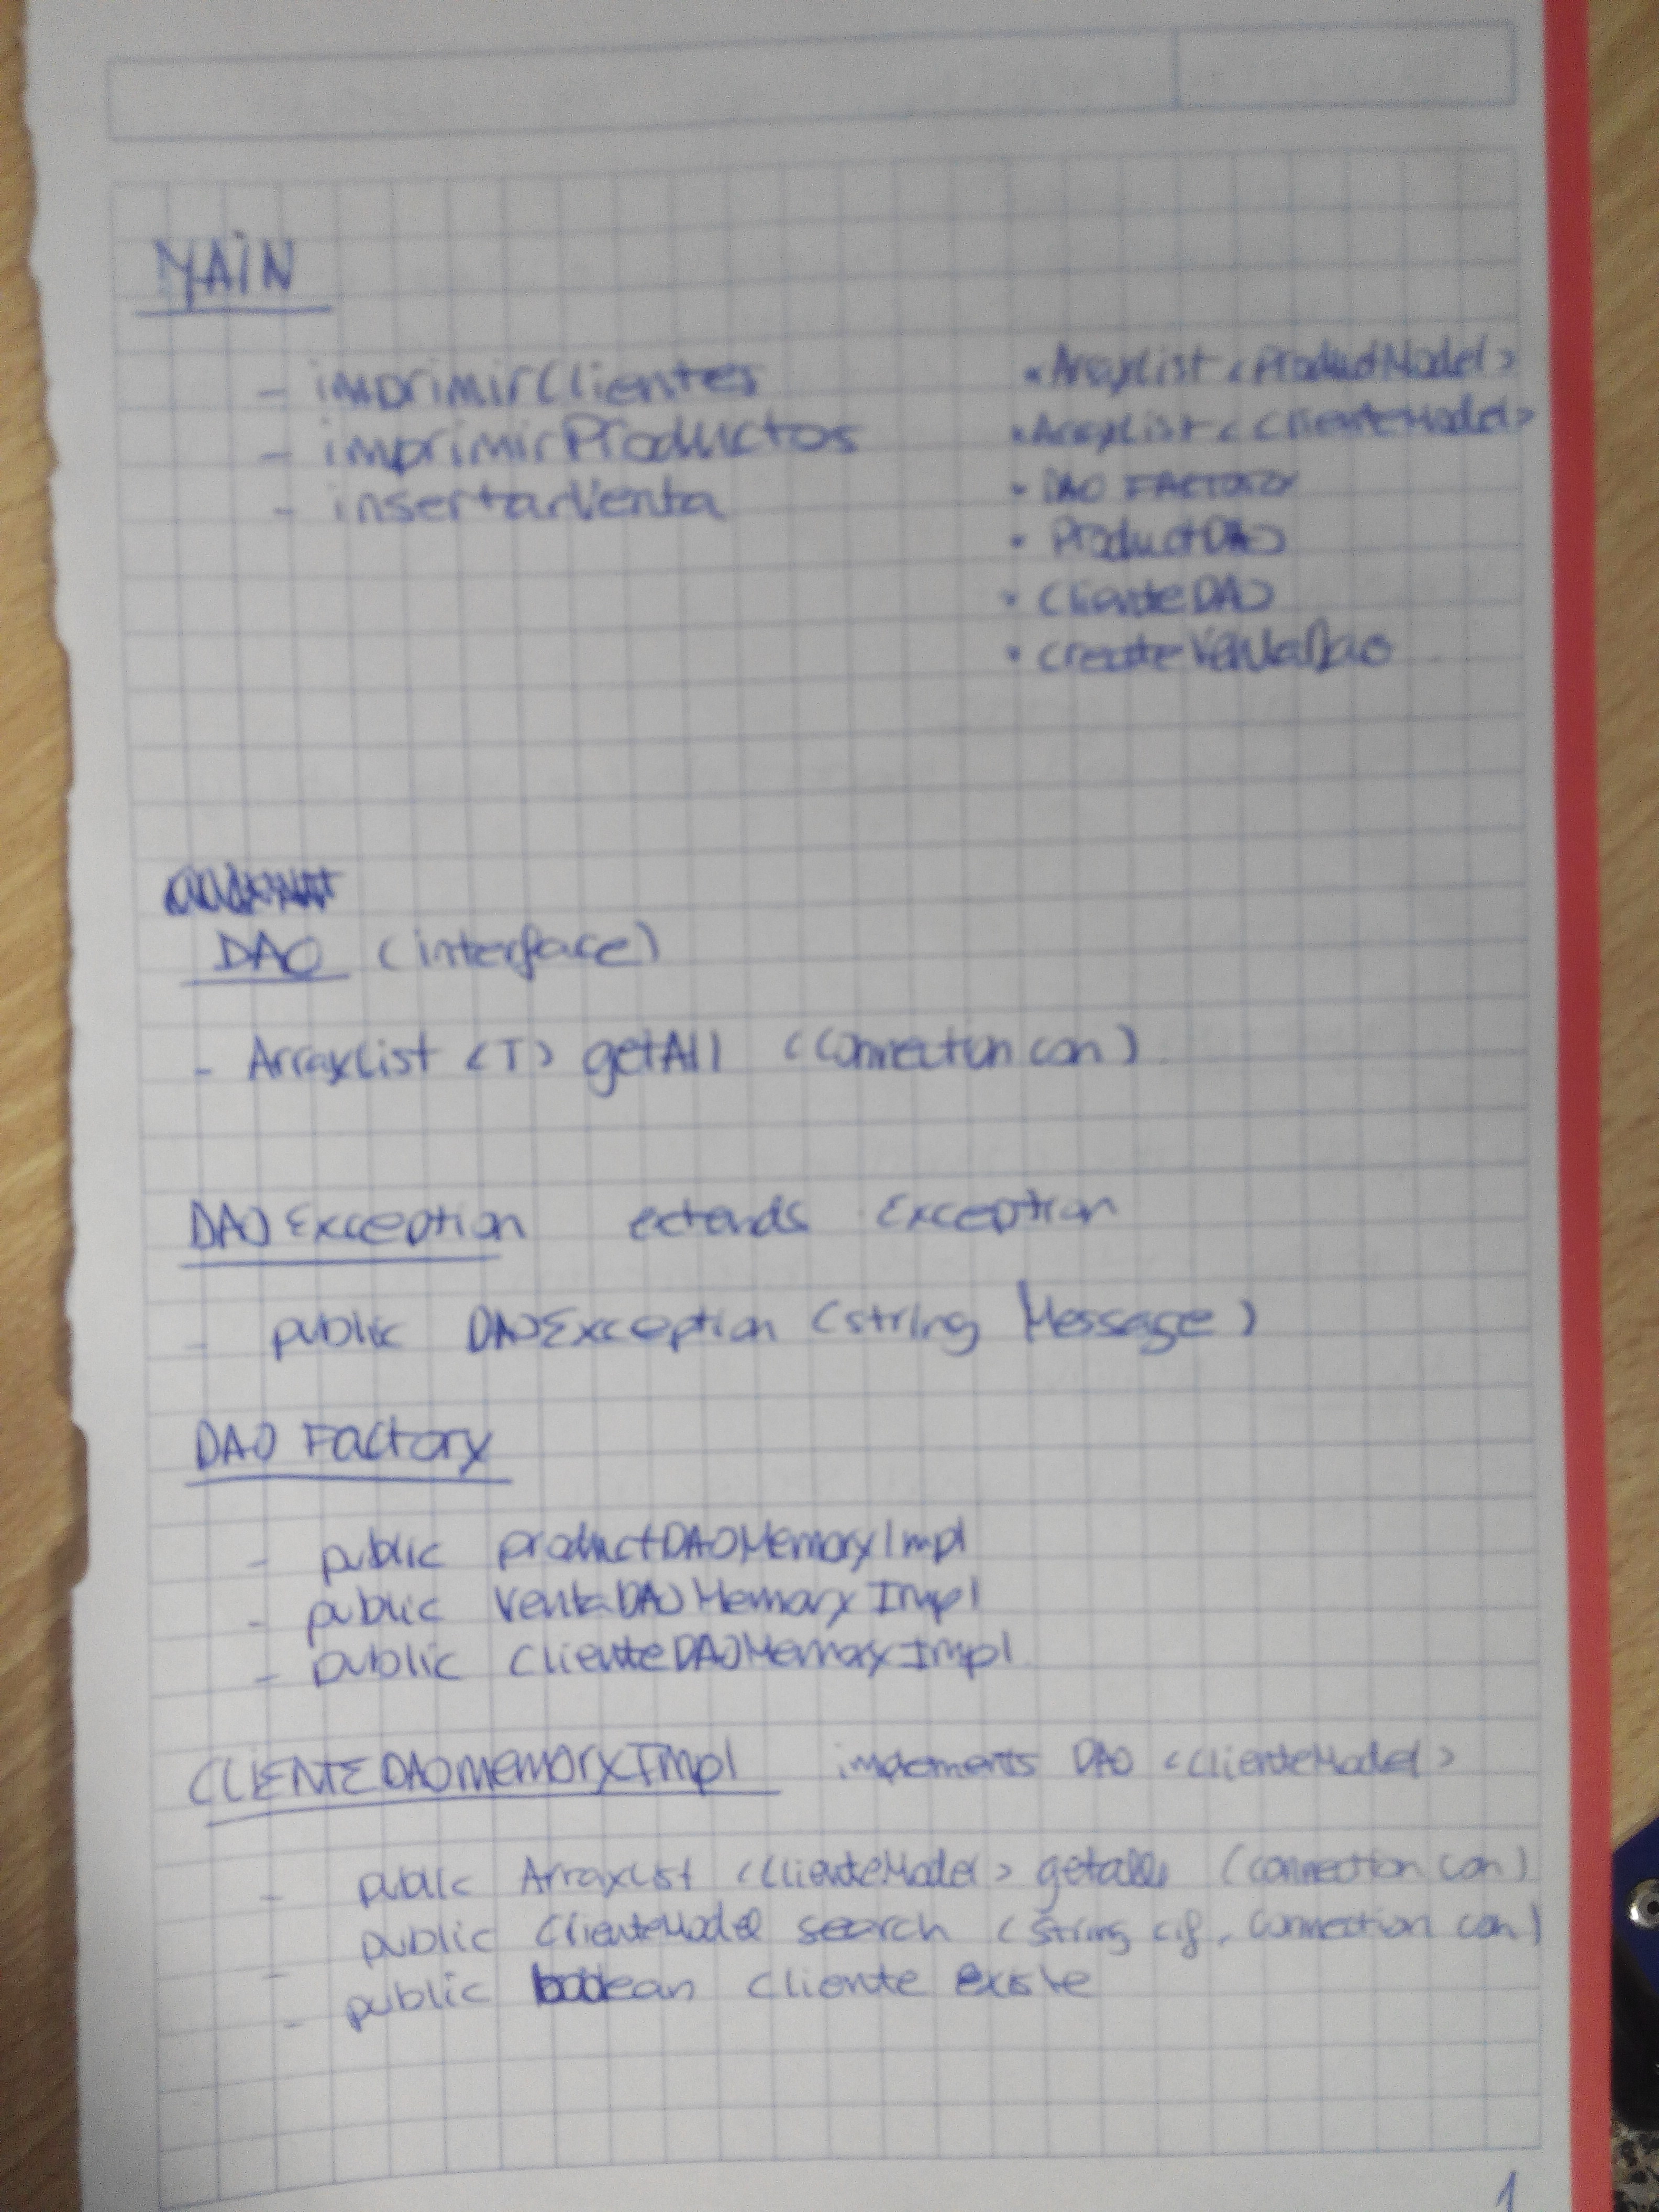 MAIN
- imprimirClientes
- imprimirProductos
- insertarVenta
* ArrayList <ProductModel>
* ArrayList <ClienteModel>
* DAO FACTORY
* ProductDAO
* ClienteDAO
* createVentaDao
DAO (interface)
- ArrayList <T> getAll (Connection con)
DAOException extends Exception
- public DAOException (string Message)
DAO Factory
- public productDAOMemoryImpl
- public VentaDAOMemoryImpl
- public ClienteDAOMemoryImpl
CLIENTEDAOmemoryImpl implements DAO <ClienteModel>
- public ArrayList <ClienteModel> getall (connection con)
- public ClienteModel search (String cif, Connection con)
- public boolean cliente existe
1